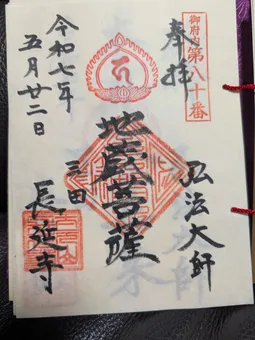 御府内
第八十番
奉拝
弘法大師
地蔵菩薩
三田
長延寺
令和七年
五月廿二日